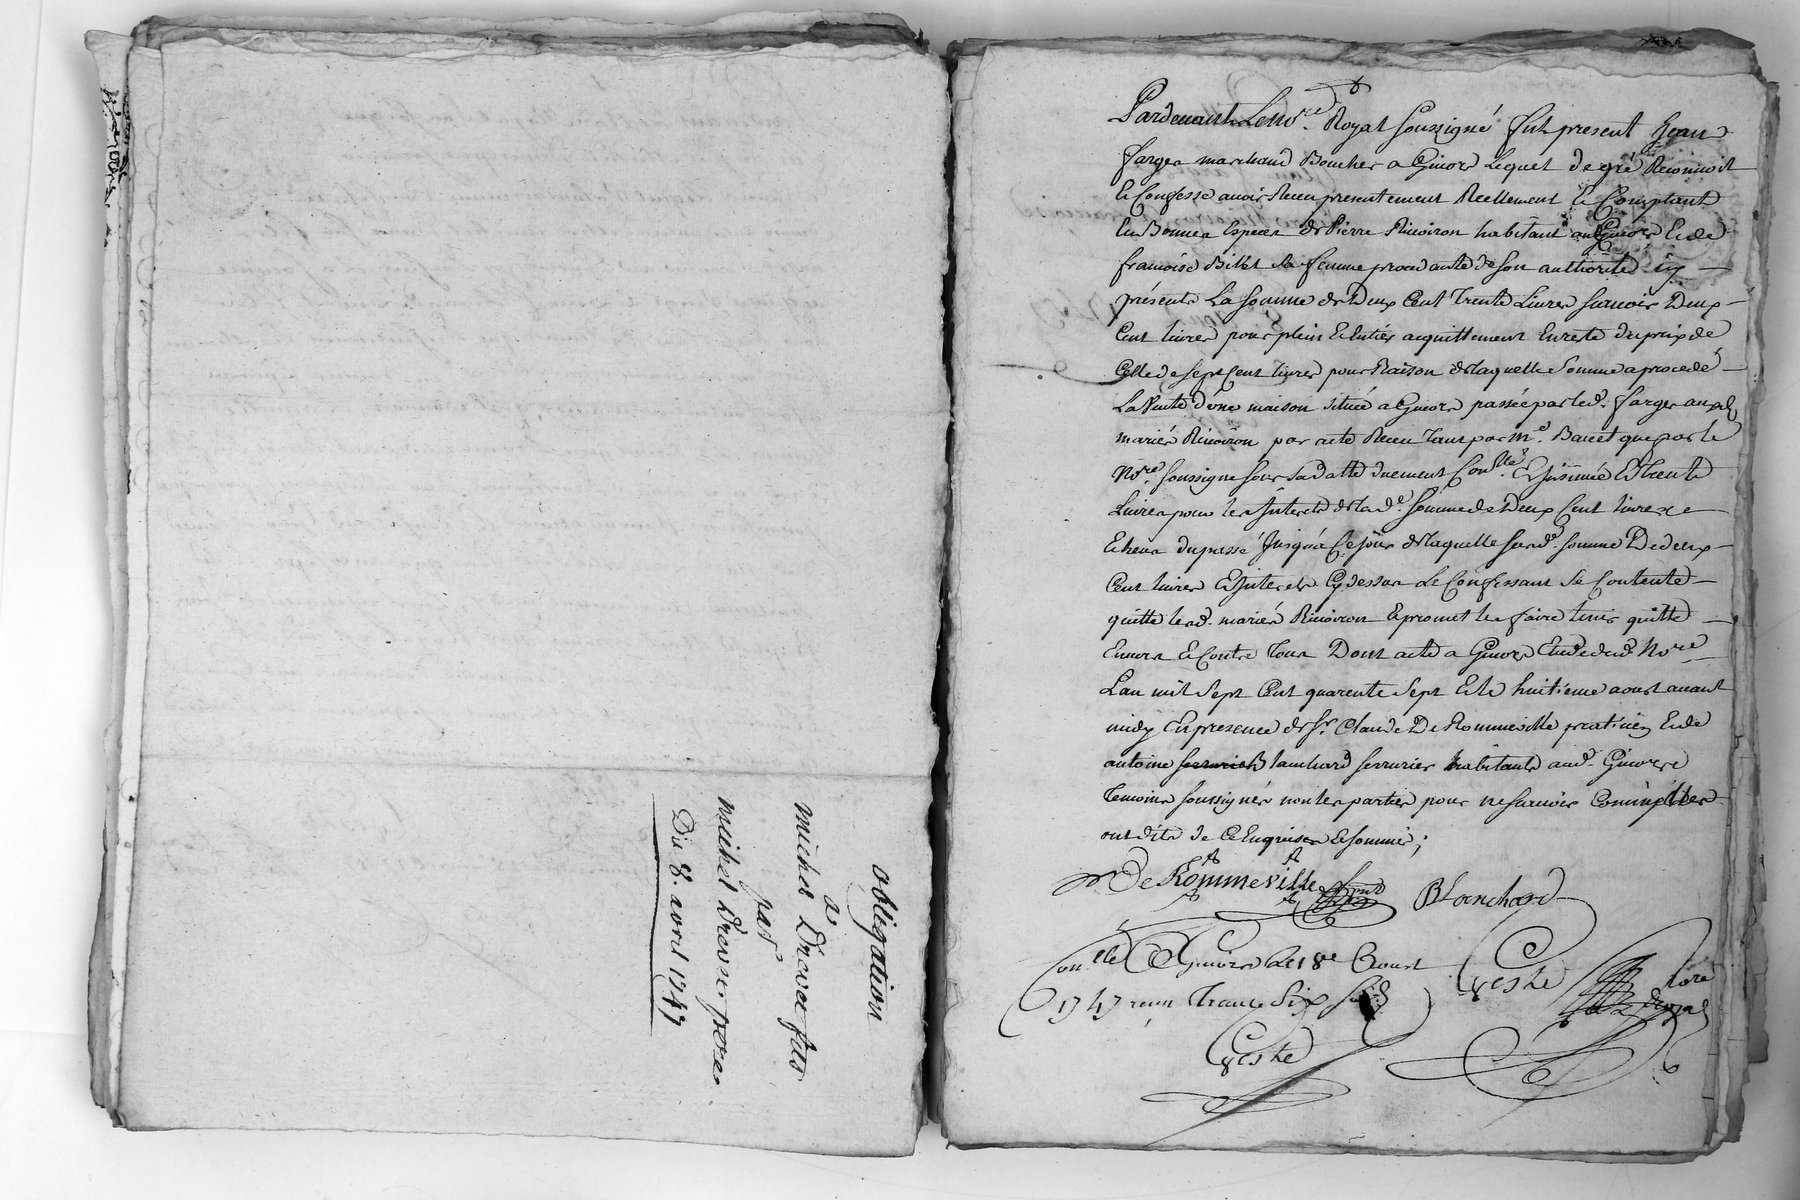 obligation
a
michel Drevet fils
par
michel Drevet pere
Du 8. avril 1747
Pardevant Le No.re Royal soussigné fut present Jean
farges marchand Boucher a Givors Lequel de gré Reconnoit
& Confesse avoir Receu presentement Reellement & Comptant
En Bonnes Especes de Pierre Rivoiron habitant aud Givors & de
françoise Billet sa femme procedante de son authorité icy
présents La somme de Deux Cent Trente Livres sçavoir Deux
Cent livres pour plein & Entier acquittement En reste du prix de
Celle de sept Cent livres pour Raison de laquelle somme a procedé
La Vente d'une maison située a Givors passée par led. farges auxd
mariés Rivoiron par acte Receu Tant par M.e que par le
No.re soussigné sous sa datte duement Con.llé & Insinué & Trente
Livres pour les Interets de lad.e somme de Deux Cent livres
Echeus du passé Jusqu'a Ce jour de laquelle susd.e somme De deux
Cent livres & Interets Cy dessus Le Confessant se Contente
quitte lesd. mariés Rivoiron & promet les faire tenir quitte
Envers & Contre Tous Dont acte a Givors Etude dud No.re
L'an mil sept Cent quarente sept & le huitieme aoust avant
midy En presence de S.r Claude De Rommeville praticien & de
antoine serrurier Blanchard serrurier habitants aud. Givors
Temoins soussignés non les parties pour ne sçavoir Comm'elles
ont dit de Ce Enquises & sommé;
De Rommeville Blanchard
Con.llé A Givors Le 18e Aoust
1747 receu Trente Six sols
No.re
Royal